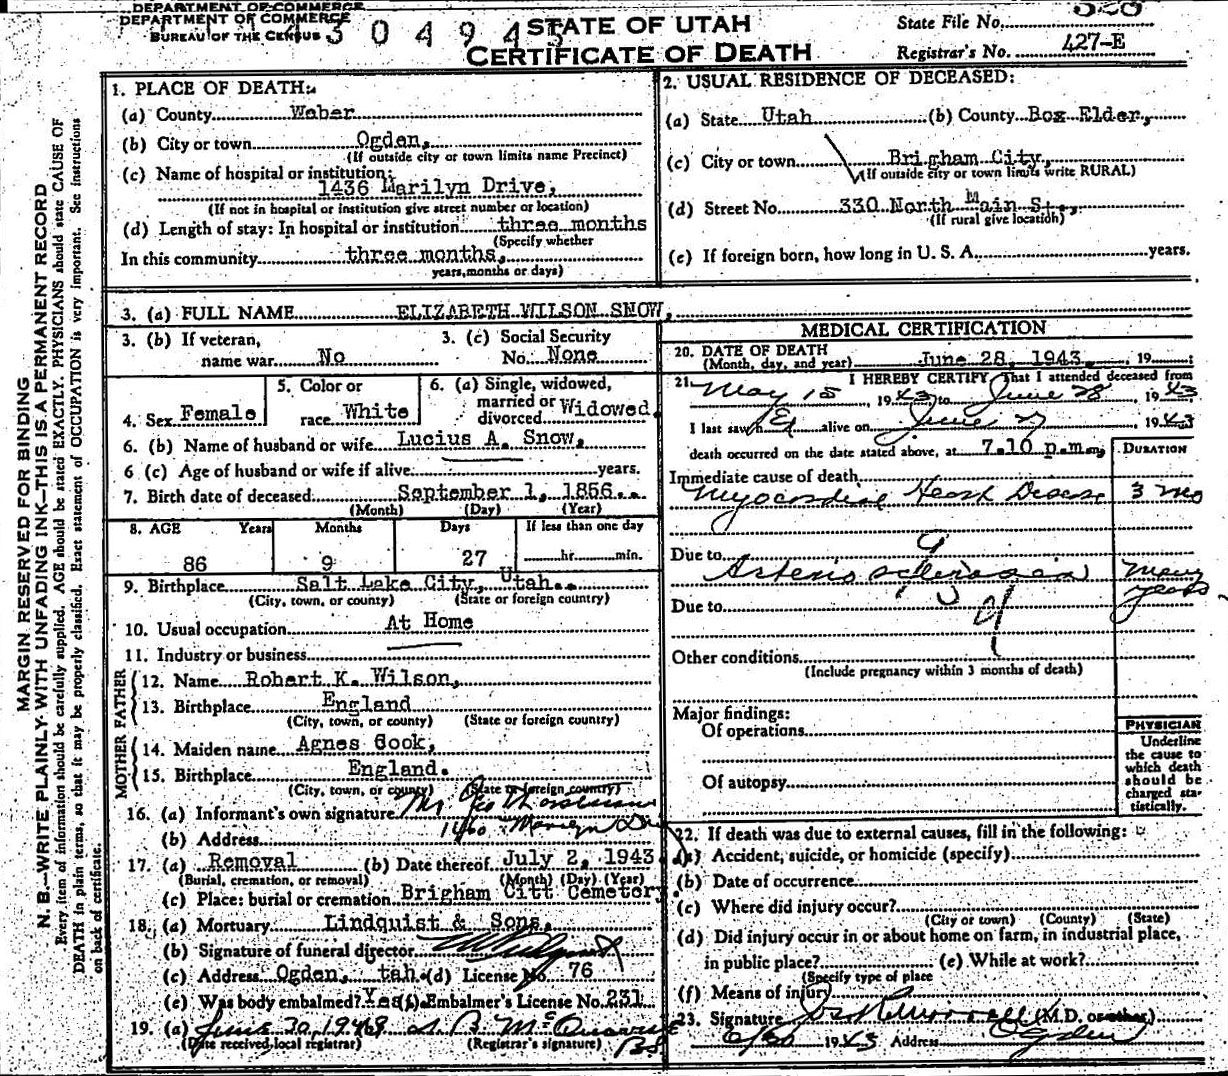 DEPARTMENT OF COMMERCE
DEPARTMENT OF COMMERCE
BUREAU OF THE CENSUS
304945
STATE OF UTAH
CERTIFICATE OF DEATH
State File No.
Registrar's No. 427-E
MARGIN RESERVED FOR BINDING
N. B.—WRITE PLAINLY WITH UNFADING INK—THIS IS A PERMANENT RECORD
Every item of information should be carefully supplied. AGE should be stated EXACTLY. PHYSICIANS should state CAUSE OF
DEATH in plain terms, so that it may be properly classified. Exact statement of OCCUPATION is very important. See instructions
on back of certificate.
1. PLACE OF DEATH:
(a) County Weber
(b) City or town Ogden,
(If outside city or town limits name Precinct)
(c) Name of hospital or institution:
1436 Marilyn Drive,
(If not in hospital or institution give street number or location)
(d) Length of stay: In hospital or institution three months
(Specify whether
In this community three months,
years, months or days)
2. USUAL RESIDENCE OF DECEASED:
(a) State Utah (b) County Box Elder,
(c) City or town Brigham City,
(If outside city or town limits write RURAL)
(d) Street No. 330 North Main St.,
(If rural give location)
(e) If foreign born, how long in U. S. A. years.
3. (a) FULL NAME ELIZABETH WILSON SNOW,
3. (b) If veteran,
name war No
3. (c) Social Security
No. None
4. Sex Female
5. Color or
race White
6. (a) Single, widowed,
married or
divorced Widowed.
6. (b) Name of husband or wife Lucius A. Snow,
6 (c) Age of husband or wife if alive years.
7. Birth date of deceased September 1, 1856.
(Month) (Day) (Year)
8. AGE Years Months Days If less than one day
86 9 27 hr. min.
9. Birthplace Salt Lake City, Utah.
(City, town, or county) (State or foreign country)
10. Usual occupation At Home
11. Industry or business
FATHER
12. Name Robert K. Wilson,
13. Birthplace England
(City, town, or county) (State or foreign country)
MOTHER
14. Maiden name Agnes Cook,
15. Birthplace England.
(City, town, or county) (State or foreign country)
16. (a) Informant's own signature
(b) Address 1460
17. (a) Removal (b) Date thereof July 2, 1943
(Burial, cremation, or removal) (Month) (Day) (Year)
(c) Place: burial or cremation Brigham Citt Cemetery.
18. (a) Mortuary Lindquist & Sons,
(b) Signature of funeral director
(c) Address Ogden, tah. (d) License No. 76
(e) Was body embalmed? Yes (f) Embalmer's License No. 231
19. (a) June 30, 1943
(Date received local registrar) (Registrar's signature)
MEDICAL CERTIFICATION
20. DATE OF DEATH
(Month, day, and year) June 28, 1943 19
21. I HEREBY CERTIFY That I attended deceased from
May 15 1943 to June 28 1943
I last saw h er alive on June 27 1943
death occurred on the date stated above, at 7.10 p.m.
DURATION
Immediate cause of death
Myocardial Heart Disease 3 mo
Due to
Arterio sclerosis many
years
Due to
Other conditions
(Include pregnancy within 3 months of death)
Major findings:
Of operations
Of autopsy
PHYSICIAN
Underline
the cause to
which death
should be
charged sta-
tistically.
22. If death was due to external causes, fill in the following:
(a) Accident, suicide, or homicide (specify)
(b) Date of occurrence
(c) Where did injury occur?
(City or town) (County) (State)
(d) Did injury occur in or about home on farm, in industrial place,
in public place? (e) While at work?
(Specify type of place
(f) Means of injury
23. Signature (M.D. or other)
6/30 1943 Address Ogden